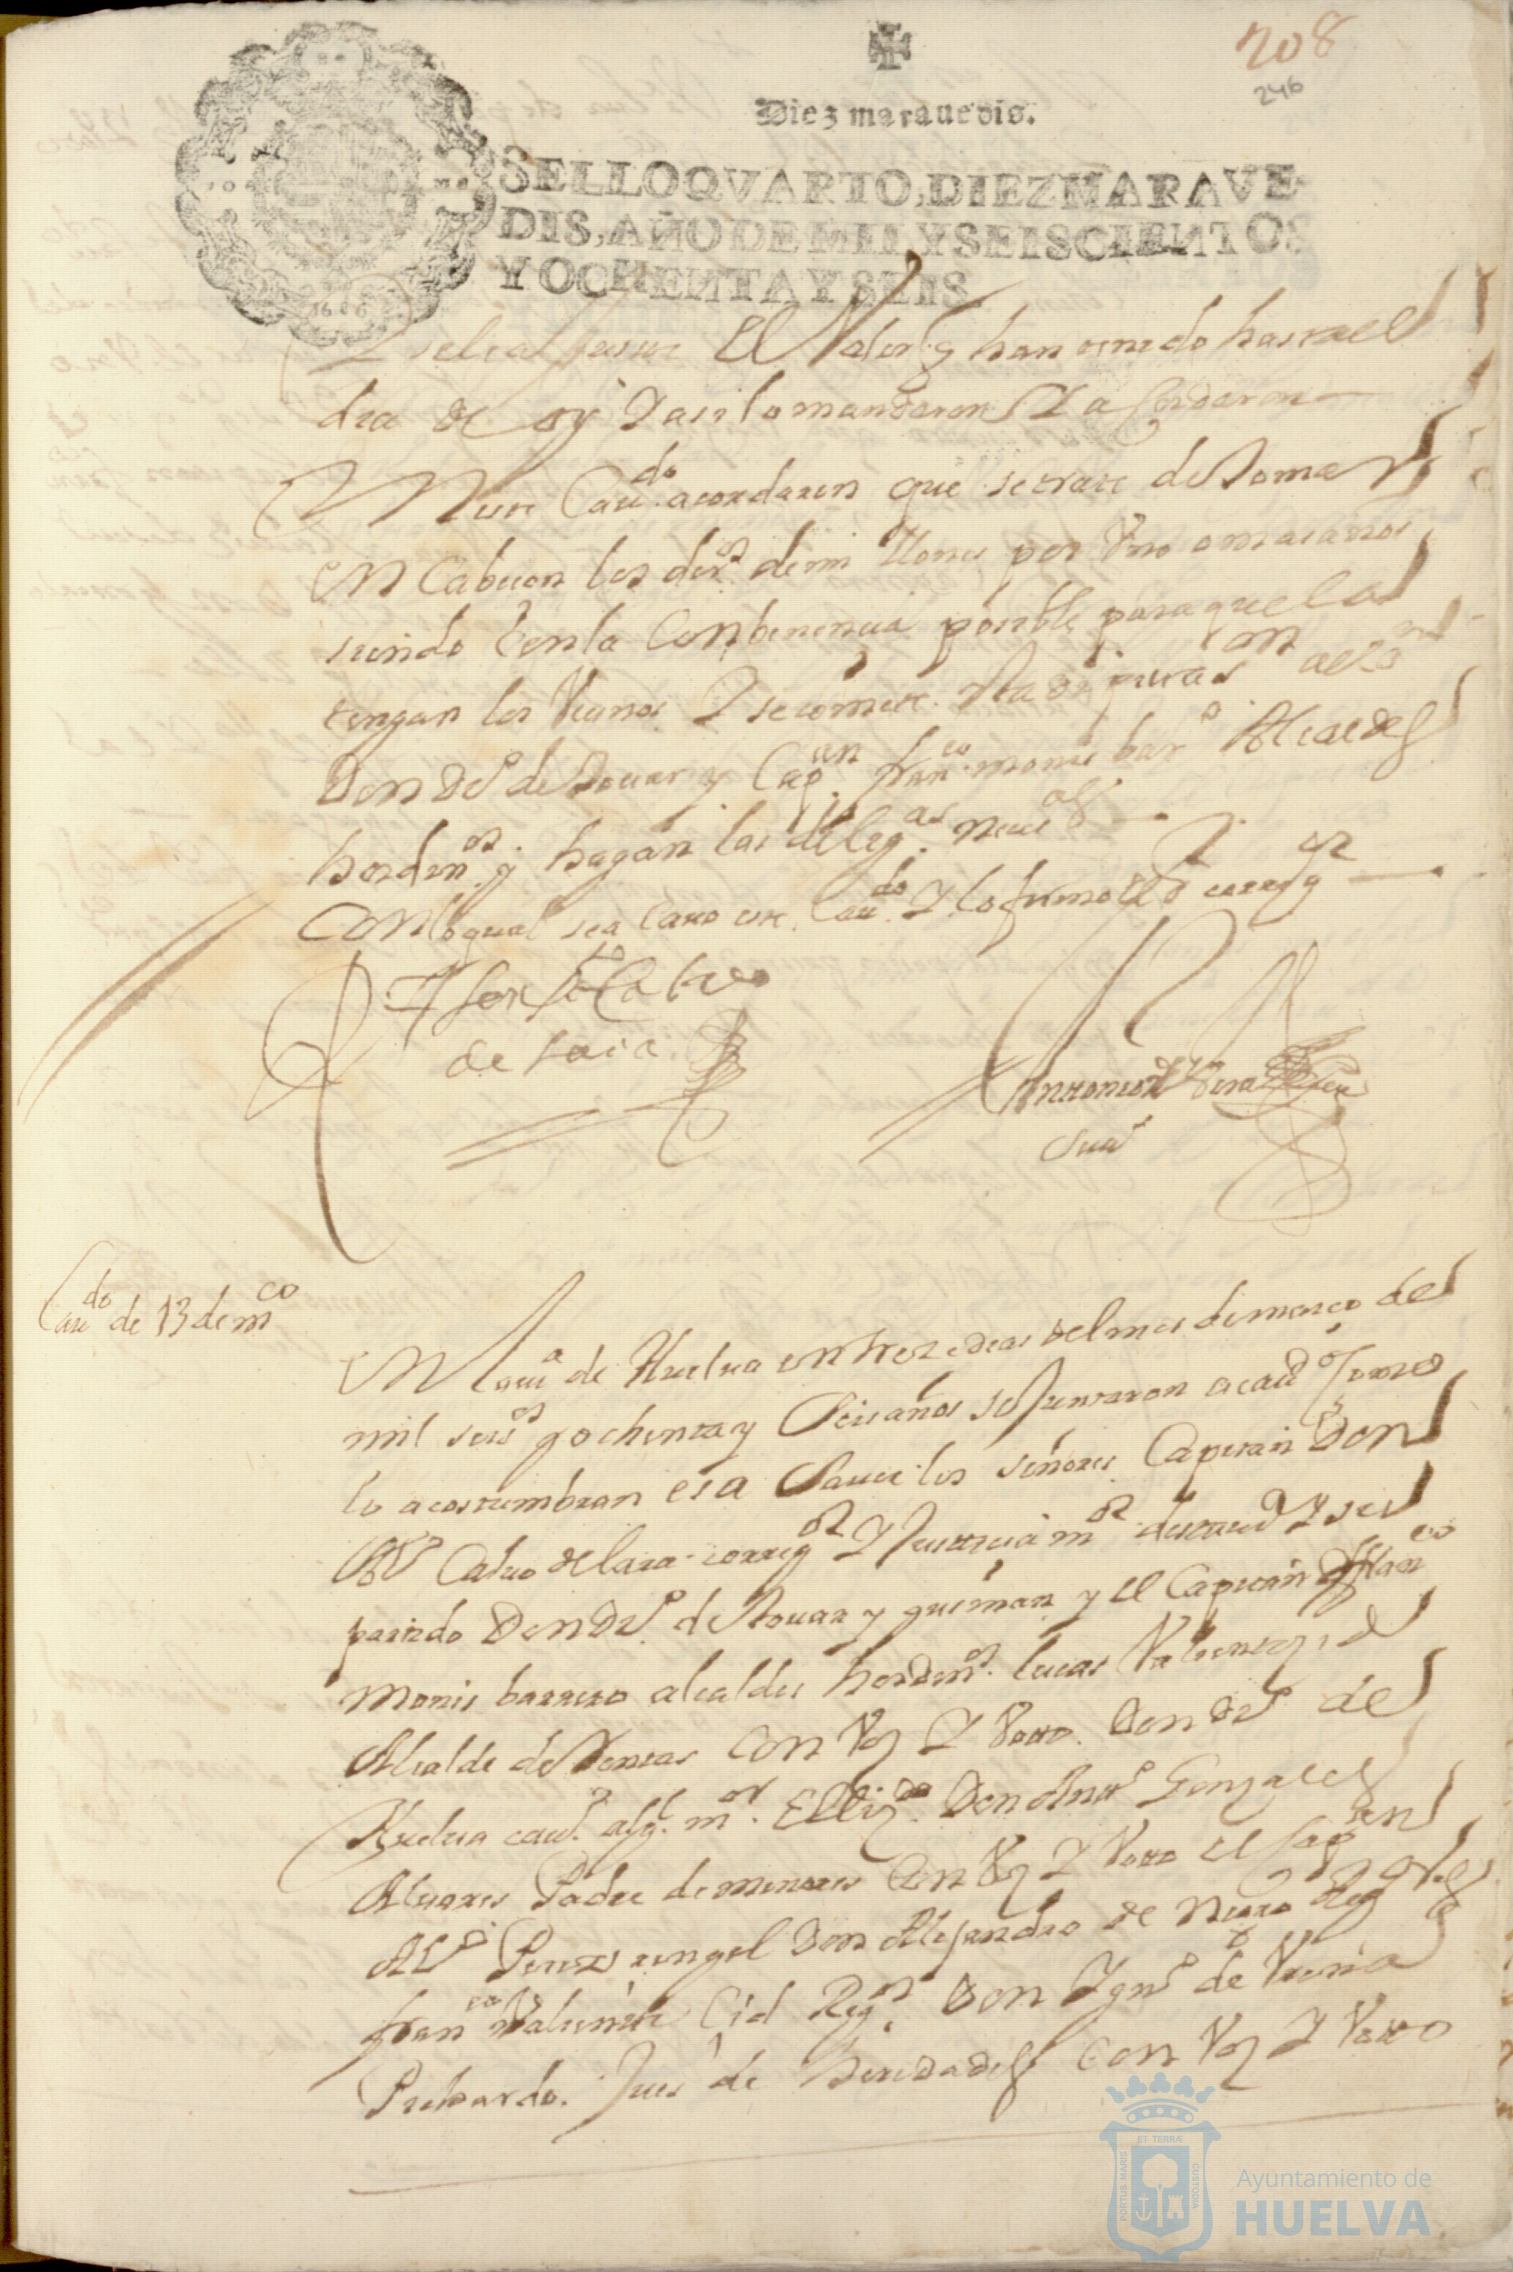 208
246
Diez marauedis.
SELLO QVARTO, DIEZ MARAVE
DIS, AÑO DE MIL Y SEISCIENTOS
Y OCHENTA Y SEIS.
1686
El Valor q han tenido hasta el
dia de oy Y asi lo mandaron Y acordaron
En este Caudo acordaron que se trate de Tomar
En Cabeson los deros de mi llones por Vno o mas años
siendo Con la Conbenencia posible para que la
tengan los Vecinos Y se comete
Don Do de Touar y Capan franco monis baro Alcaldes
hordinos y hagan las deligas neces
Con lo qual sea Caro este Caudo Y lo firmo el sr corregor
Alonso Calvo
de lara
Antonio de Vera
Caudo de 13 de mco
En la uia de Huelua en treze dias del mes de março de
mil seisos y ochenta y Seis años se Juntaron a caudo Como
lo acostumbran es a Sauer los señores Capitan Don
Alo Caluo de lara corregor Y Justicia mor desta ud Y su
partido Don Do de Touar y gusman y el Capitan franco
monis barrero alcaldes hordinos lucas Valiente
Alcalde de Rentas Con Voz Y Voto Don Do de
Huelua cauo algl mor El Lizdo Don Anto Gonzales
Aluares Padre de menores Con Voz Y Voto el Capan
Alo Peres rengel Don Alejandro de Neira Regores
franco Valiente Cid Regor Don Igno de Vreña
Prebardo. Jues de heredades Con Voz Y Voto
PORTUS MARIS
ET TERRÆ
CUSTODIA
Ayuntamiento de
HUELVA